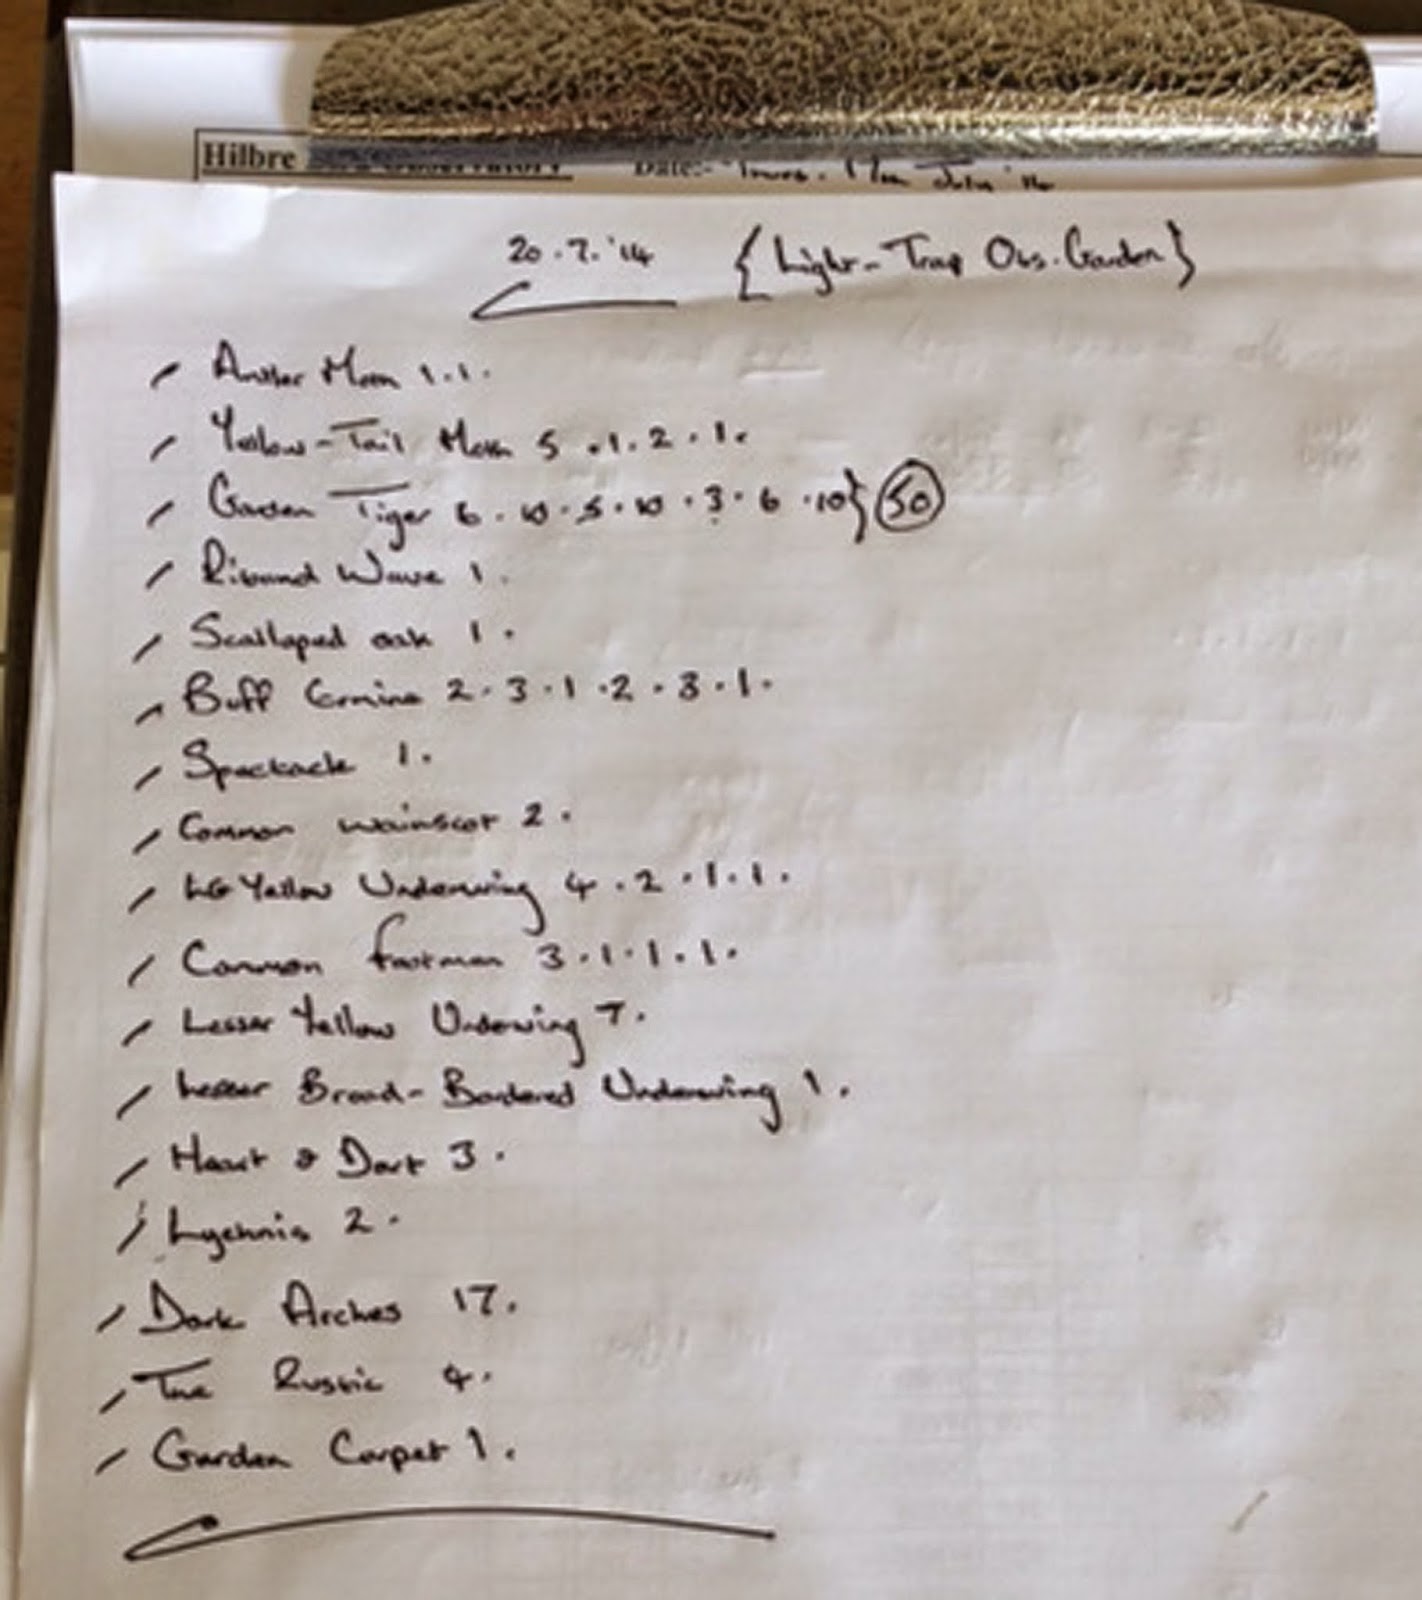 Hilbre Bird Observatory Date:- Thurs. 17th July '14
20.7.'14 {Light-Trap Obs. Garden}
Antler Moth 1.1.
Yellow-Tail Moth 5.1.2.1.
Garden Tiger 6.10.5.10.3.6.10} 50
Riband Wave 1.
Scalloped oak 1.
Buff Ermine 2.3.1.2.3.1.
Spectacle 1.
Common wainscot 2.
LG Yellow Underwing 4.2.1.1.
Common footman 3.1.1.1.
Lesser Yellow Underwing 7.
Lesser Broad-Bordered Underwing 1.
Heart & Dart 3.
Lychnis 2.
Dark Arches 17.
The Rustic 4.
Garden Carpet 1.